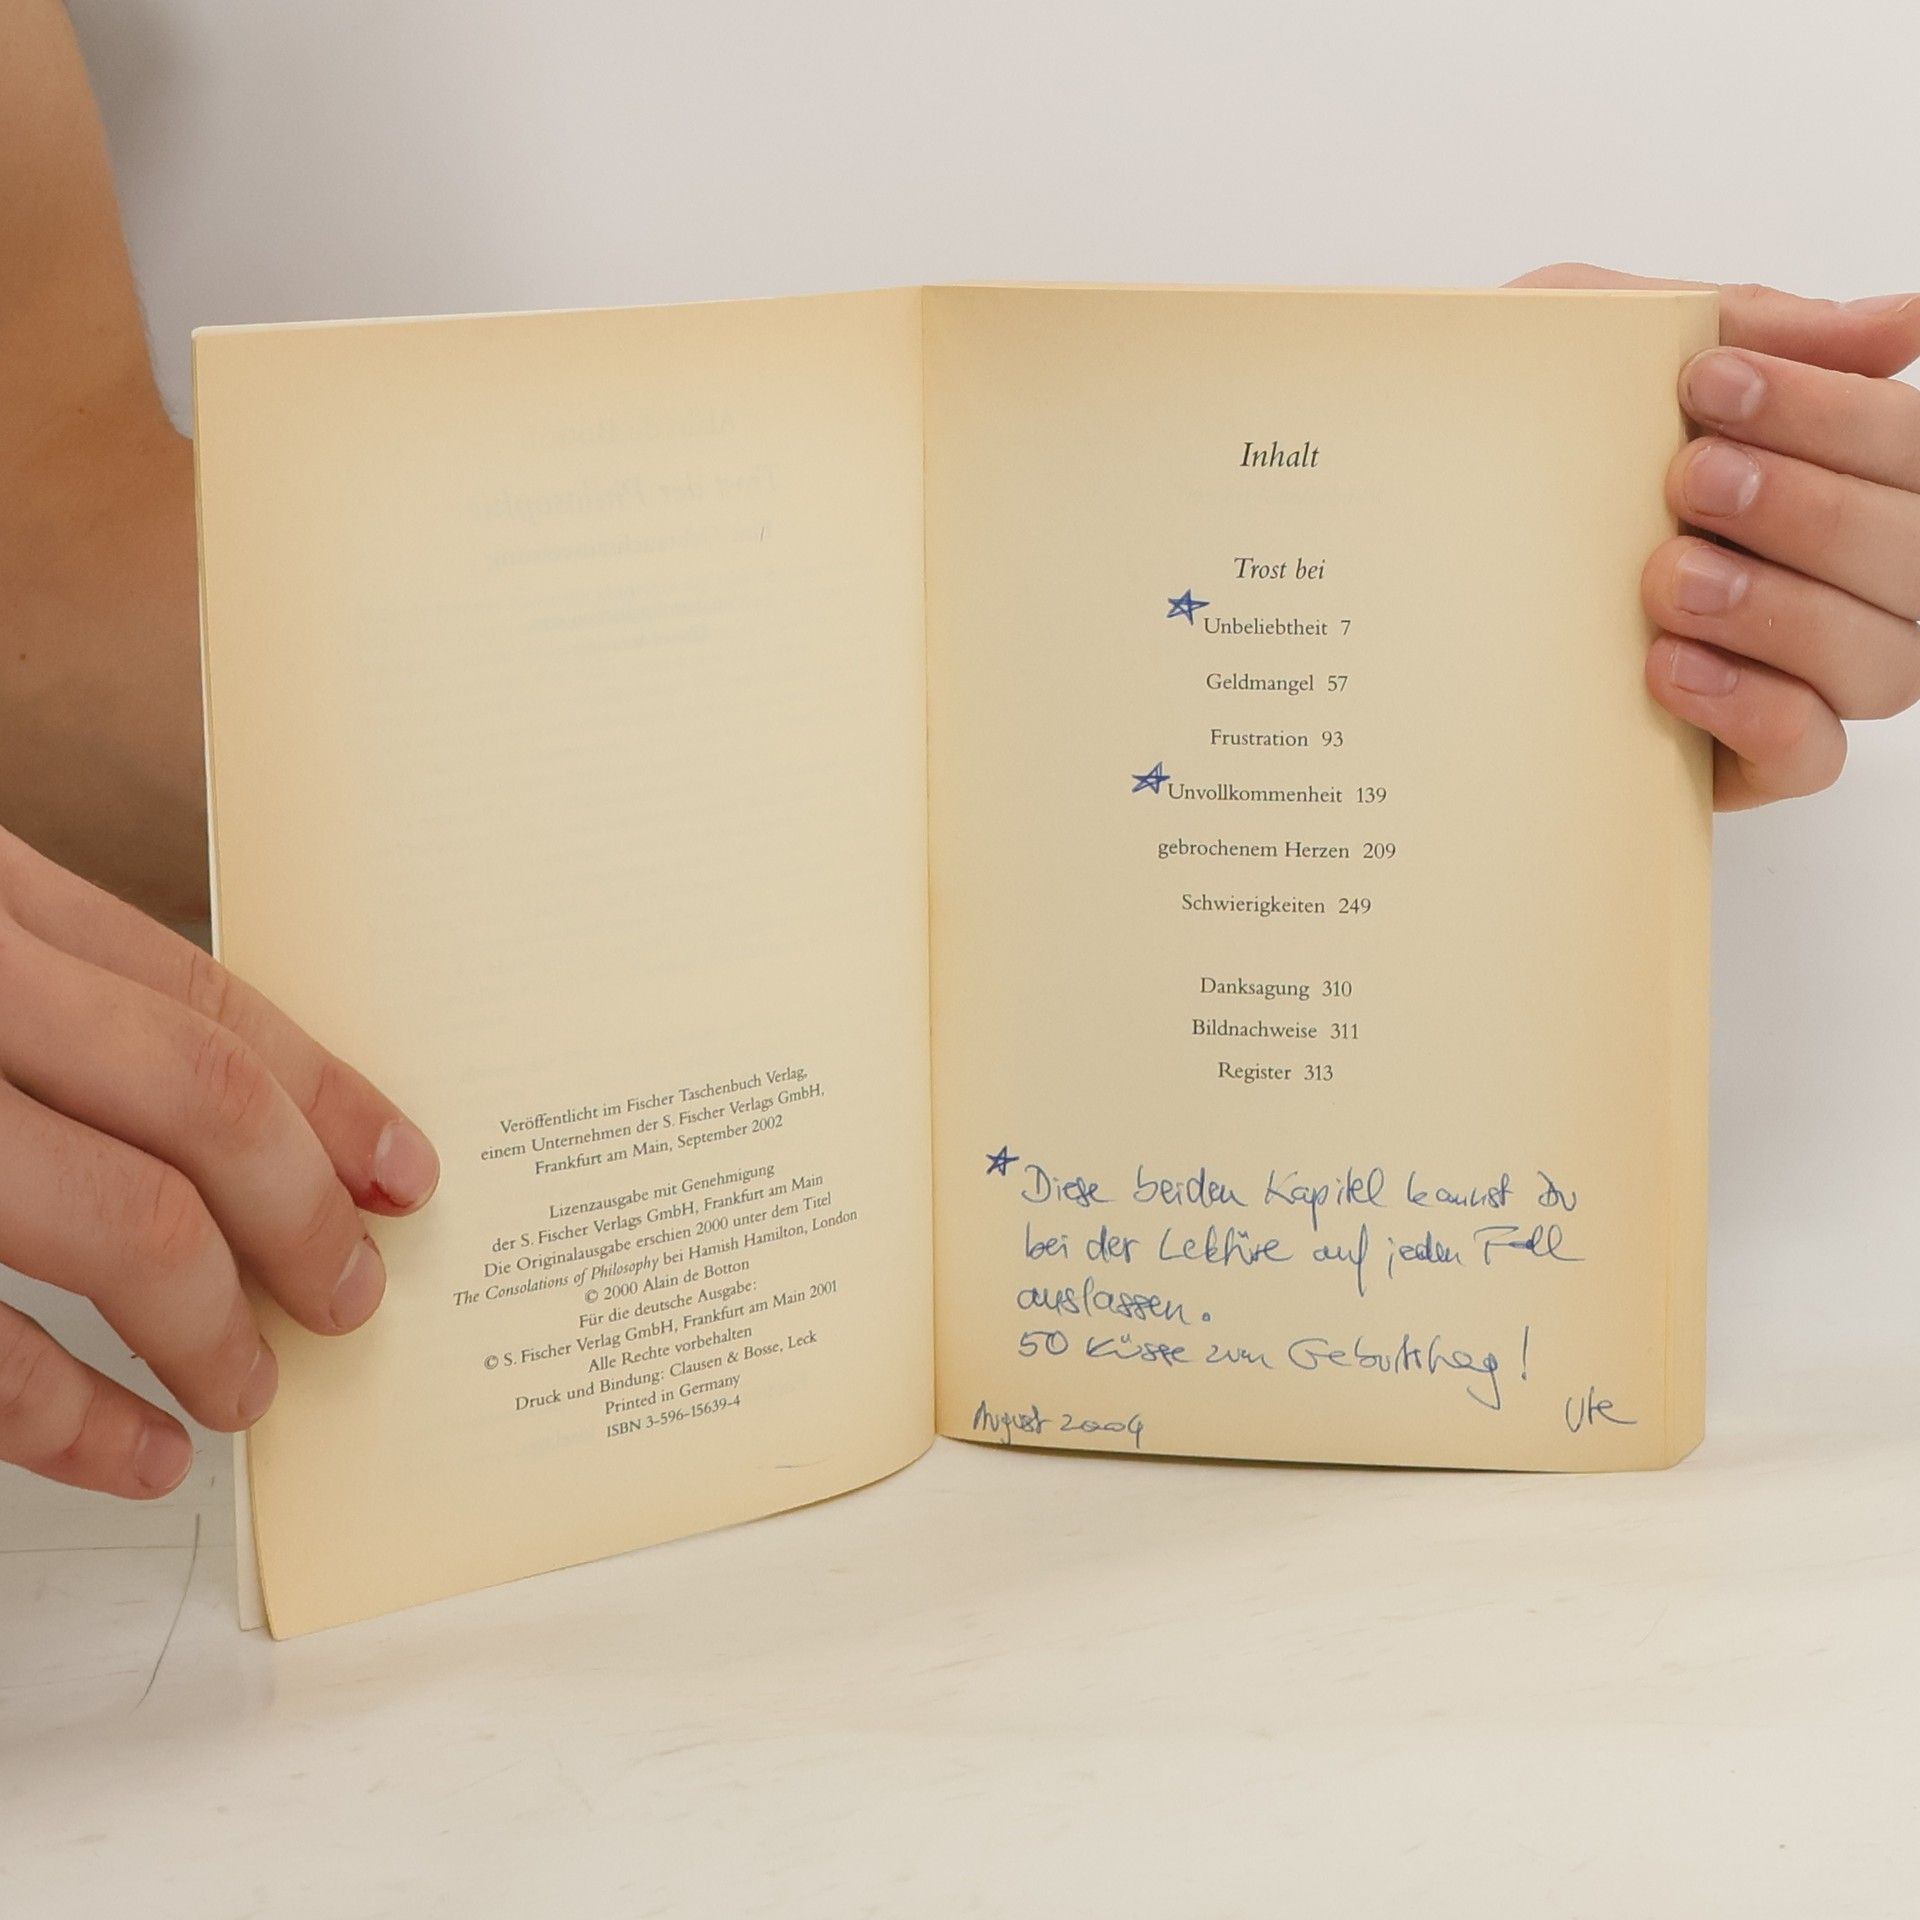 Veröffentlicht im Fischer Taschenbuch Verlag,
einem Unternehmen der S. Fischer Verlags GmbH,
Frankfurt am Main, September 2002
Lizenzausgabe mit Genehmigung
der S. Fischer Verlags GmbH, Frankfurt am Main
Die Originalausgabe erschien 2000 unter dem Titel
The Consolations of Philosophy bei Hamish Hamilton, London
© 2000 Alain de Botton
Für die deutsche Ausgabe:
© S. Fischer Verlag GmbH, Frankfurt am Main 2001
Alle Rechte vorbehalten
Druck und Bindung: Clausen & Bosse, Leck
Printed in Germany
ISBN 3-596-15639-4
Inhalt
Trost bei
Unbeliebtheit 7
Geldmangel 57
Frustration 93
Unvollkommenheit 139
gebrochenem Herzen 209
Schwierigkeiten 249
Danksagung 310
Bildnachweise 311
Register 313
Diese beiden Kapitel kannst Du
bei der Lektüre auf jeden Fall
auslassen.
50 Küsse zum Geburtstag!
Ute
August 2004